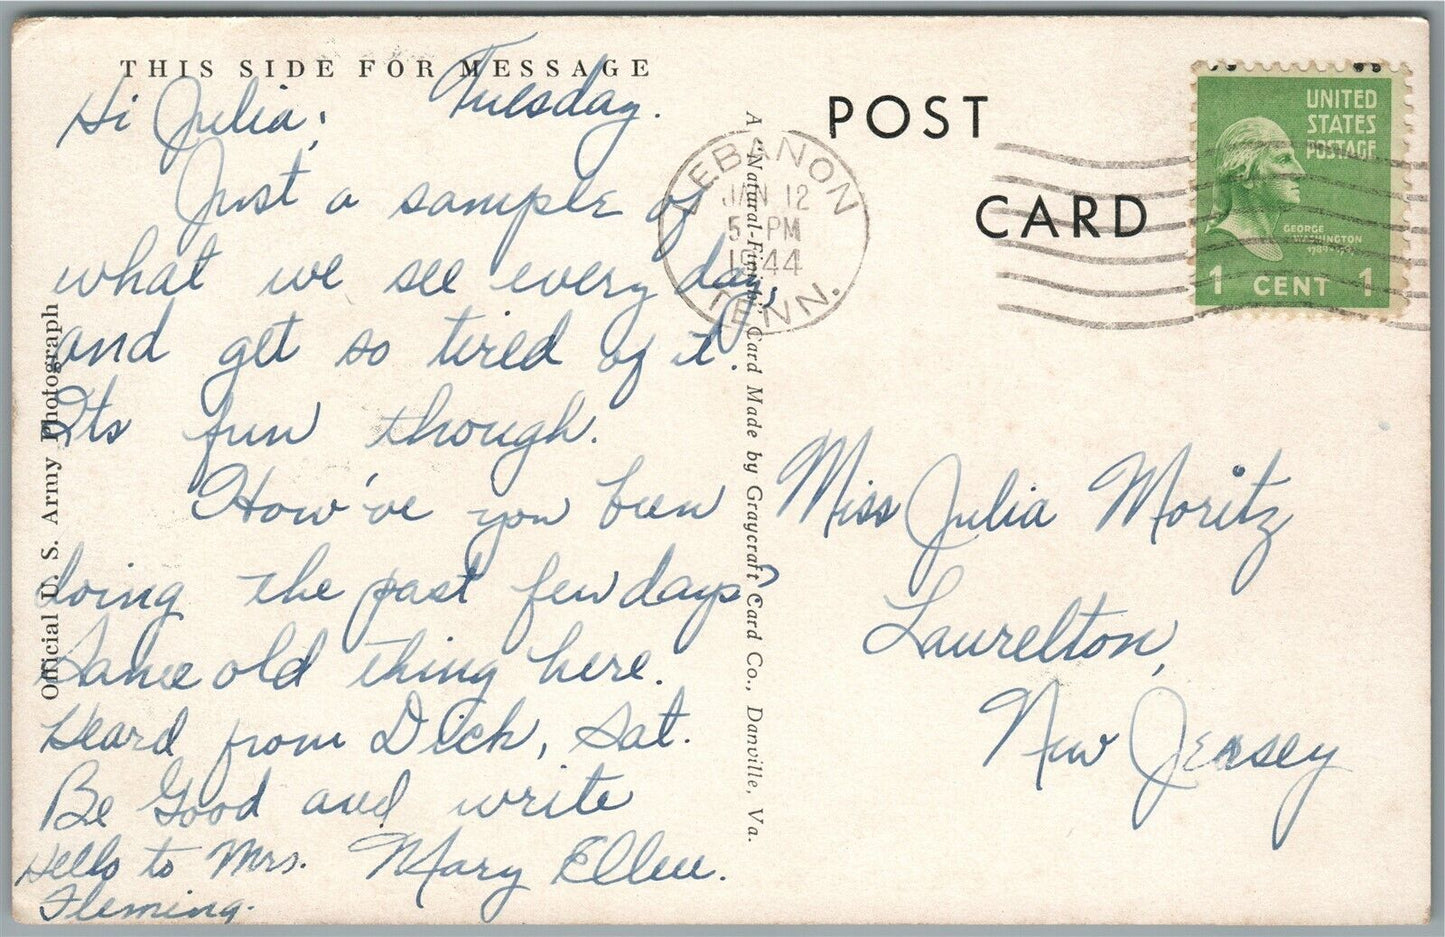 THIS SIDE FOR MESSAGE
Tuesday.
Hi Julia;
Just a sample of
what we see every day,
and get so tired of it.
Its fun though.
How've you been
doing the past few days?
Same old thing here.
Heard from Dick, Sat.
Be Good and write
Mary Ellen.
Hello to Mrs.
Fleming.
Official U. S. Army Photograph
A "Natural-Finish" Card Made by Graycraft Card Co., Danville, Va.
POST
CARD
LEBANON
JAN 12
5 PM
1944
TENN.
UNITED
STATES
POSTAGE
GEORGE
WASHINGTON
1789-1797
1 CENT 1
Miss Julia Moritz
Laurelton,
New Jersey